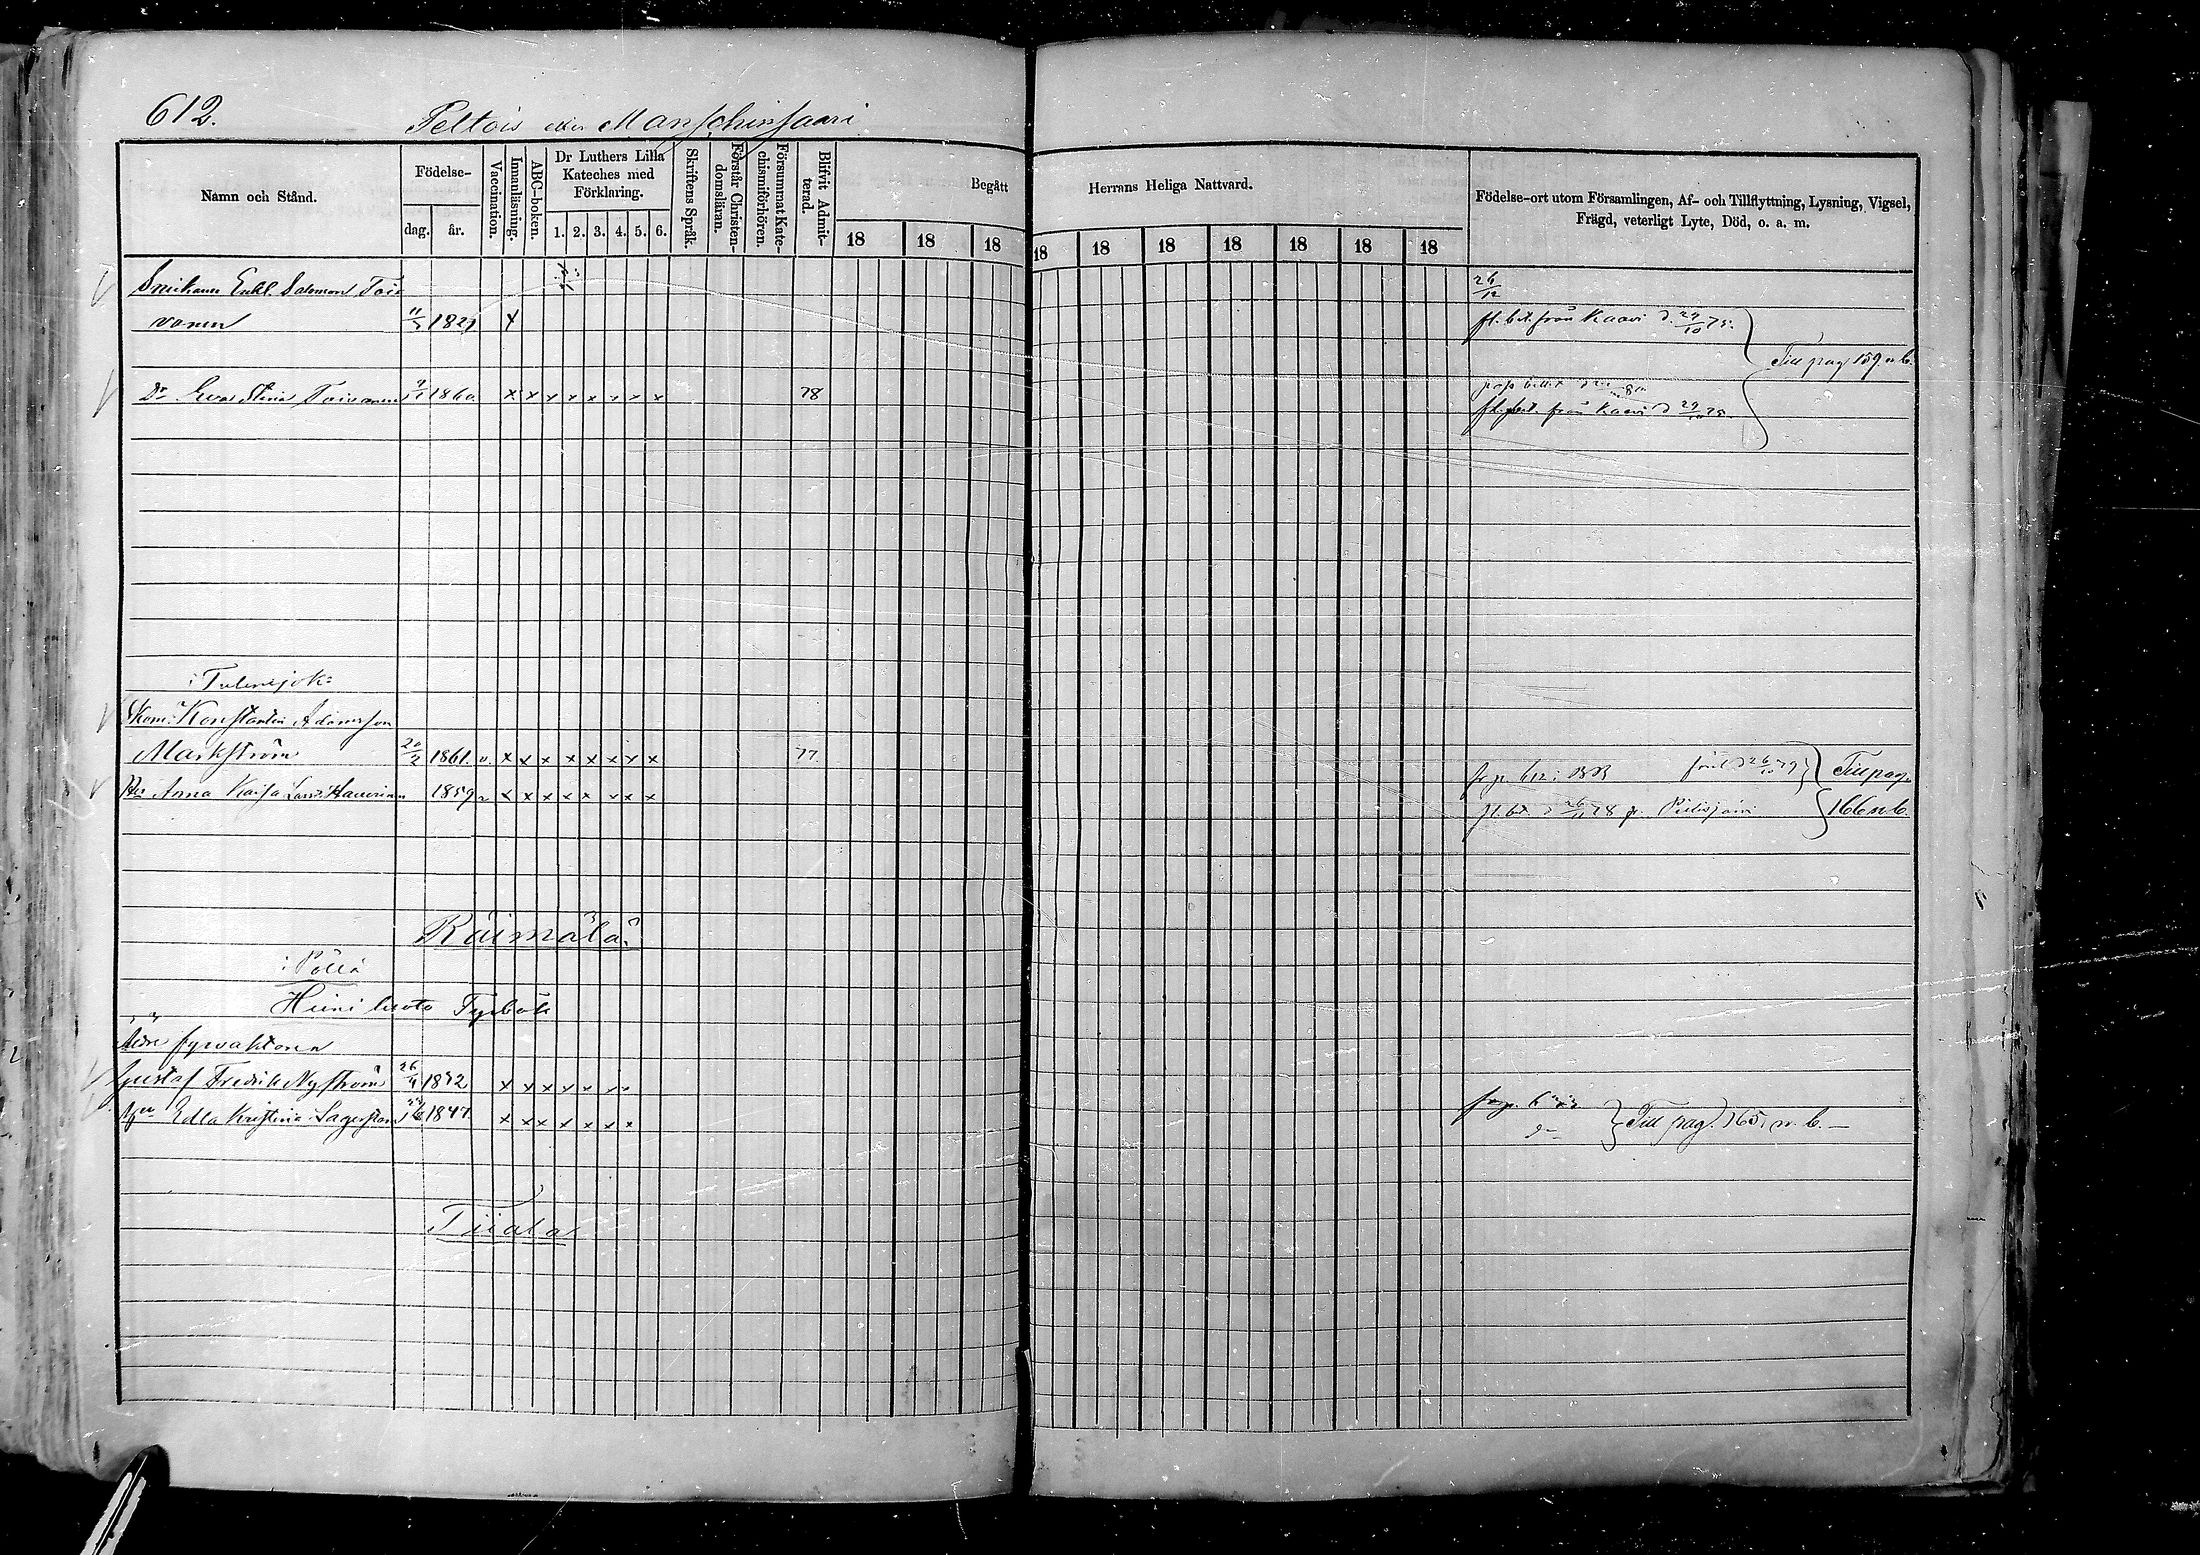 612.
Peltois eller Manschinsaari
Namn och Stånd.
Födelse-
dag.
år.
Vaccination.
Innanläsning.
ABC-boken.
Dr Luthers Lilla
Kateches med
Förklaring.
1. 2. 3. 4. 5. 6.
Skriftens Språk.
Förstår Christen-
domsläran.
Försummat Kate-
chismiförhören.
Blifvit Admit-
terad.
Begått
Herrans Heliga Nattvard.
18 18 18 18 18 18 18 18 18 18
Födelse-ort utom Församlingen, Af- och Tillflyttning, Lysning, Vigsel,
Frägd, veterligt Lyte, Död, o. a. m.
Enkl. Salomon Toi
vonen 11/3 1821 x
26/12
fl. bet. från Kaavi d. 29/10 75.
Till pag 159 n. b.
Dr Eva Stina Toivonen 1860 x x x x x x x x 78
fl. bet. från Kaavi d 29/10 75
Konstantin Adamsson
Markström 20/2 1861. v. x x x x x x x x 77
fr. p. 612
26/10 79
Till pag.
166 n. b.
Hu Anna Kaisa 1859 x x x x x x x x
fl. bet. d 26/11 78 fr. Pielisjärvi
Räimälä
Pöllä
Hiiniluoto Fyrbåk
Äldre fyrvaktaren
Gustaf Fredrik Nyström 26/4 1832 x x x x x x x
Hu Edla Kristina 1847 x x x x x x x
Till pag. 165, n. b.
Tiiala